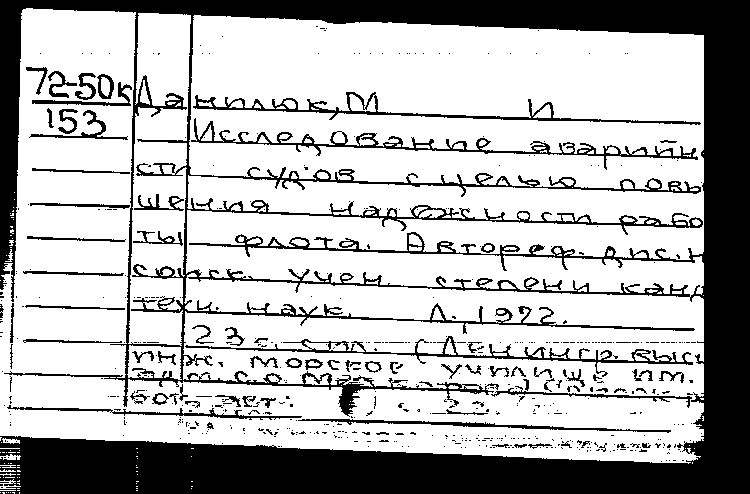 72-50к Данилюк, М И
153 Исследование аварийно
сти судов с целью повы
шения надежности рабо
ты флота. Автореф. дис. н
соиск. учен. степени канд
техн. наук. Л., 1972.
23 с. с ил. (Ленингр. высш
инж. морское училище им.
адм. С.О. Макарова) (
бот авт.: с. 23.